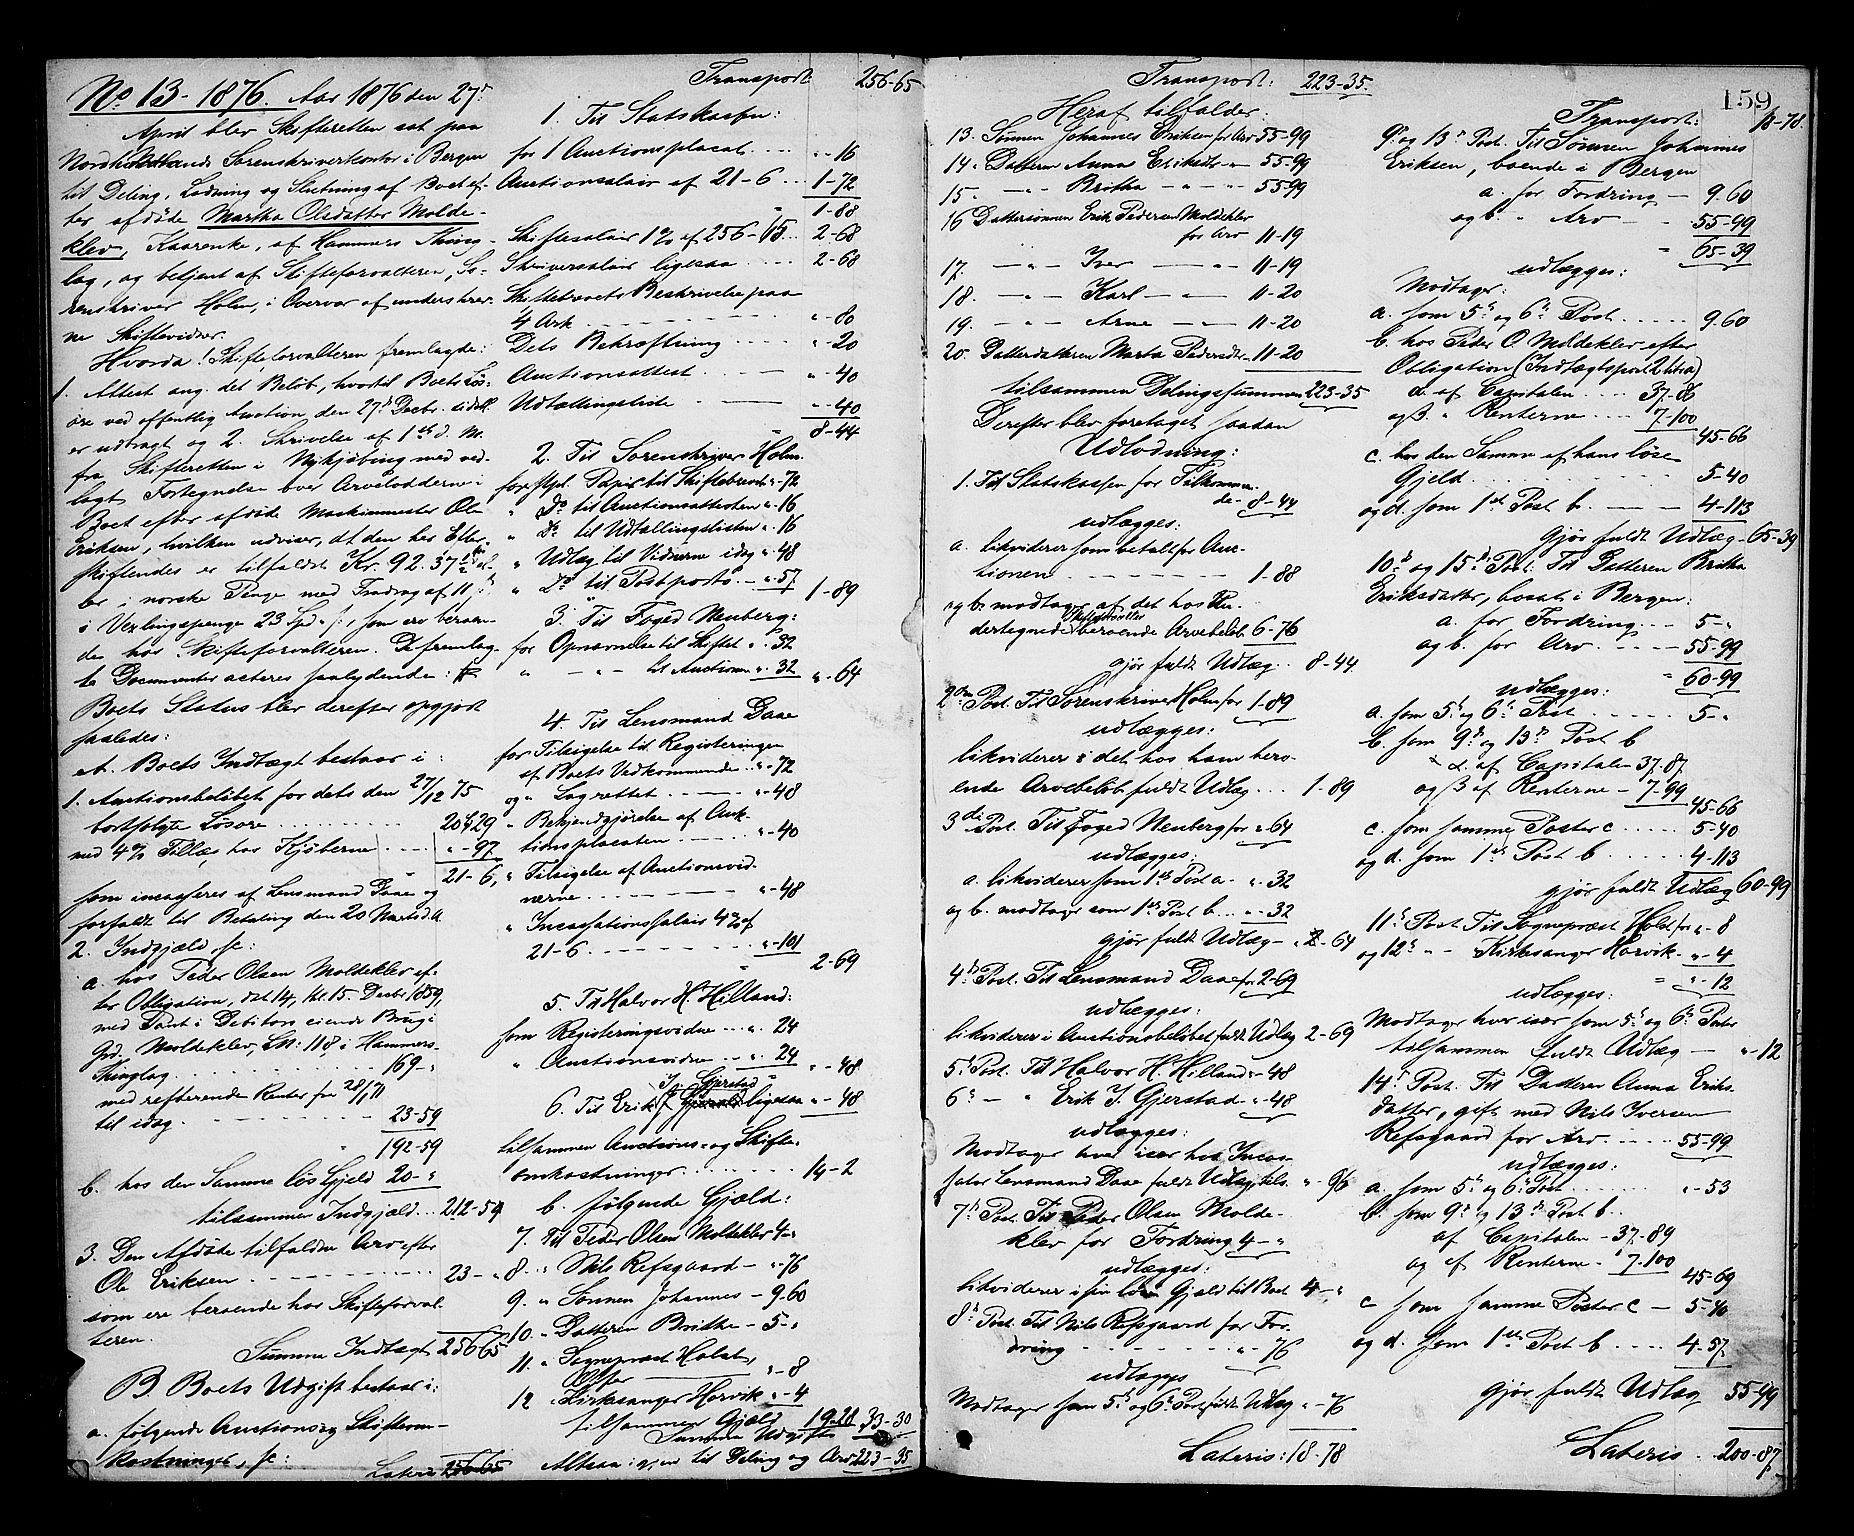 No 13-1876. Aar 1876 den 27de
April blev Skifteretten sat paa
Nordhordlands Sorenskriverkontor i Bergen
til Deling, Lodning og Slutning af Boet ef-
ter afdøde Martha Olsdatter Molde-
klev, Kaarenke, af Hammers Thing-
lag, og betjent af Skifteforvalteren, So-
renskriver Holm, i Overvær af underskrev-
ne Skiftevidner.
Hvorda! Skifteforvalteren fremlagde:
1. Attest ang. det Beløb, hvortil Boets Løs-
øre ved offentlig Auction den 27de Decbr. sidstl.
er udbragt og 2. Skrivelse af 1ste d. M.
fra Skifteretten i Nykjøbing med ved-
lagt Fortegnelse over Arvelodderne i
Boet efter afdøde Maskinmester Ole
Eriksen, hvilken udviser, at den her Efter-
skiftendes er tilfaldt Kr. 92.37 el-
ler i norske Penge med Fradrag af 11
i Vexlingspenge 23 Spd., som ero beroen-
de hos Skifteforvalteren. De fremlag-
te Documenter acteres saalydende:
Boets Status blev derefter opgjort
saaledes:
A. Boets Indtægt bestaar i:
1. Auctionsbeløbet for dets den 27/12 75
bortsolgte Løsøre 20-29
med 4% Tillæg hos Kjøberne "-97
21-6,
som incasseres af Lensmand Daae og
forfaldt til Betaling den 20 Marts d.A.
2. Indgjæld, sc:
a. hos Peder Olsen Moldeklev ef-
ter Obligation, dat. 14, thl. 15. Decbr. 1859,
med Pant i Debitors eiende Brug i
Grd. Moldeklev, LN: 118 i Hammers
Thinglag 169-"
med resterende Renter fra 28/1 71
til idag 23-59
192-59
b. hos den Samme løs Gjeld 20-"
tilsammen Indgjæld 212-59
3. Den Afdøde tilfalden Arv efter
Ole Eriksen 23-"
som ere beroende hos Skifteforval-
teren.
Summa Indtægt 256-65
B. Boets Udgift bestaar i:
a. følgende Auctions og Skifteom-
kostninger, sc:
Lateris 256-65
Transport 256-65
1. Til Statskassen:
for 1 Auctionsplacat "-16
Auctionsalair af 21-6 1-72
1-88
Skiftesalair 1% af 256-65 2-68
Skriversalair ligesaa 2-68
Skifteboets Beskrivelse paa
4 Ark "-80
Dets Bekræftning "-20
Auctionsattest "-40
Udtallingsliste "-40
8-44
2. Til Sorenskriver Holm
for stpl. Papir til Skiftebrevet "-72
" Do til Auctionsattesten "-16
" Do til Udtallingslisten "-16
" Udlæg til Vidnerne idag "-48
" Do til Postporto "-57
1-89
3. Til Foged Neuberg:
for Opnævnelse til Skiftet "-32
" — " — til Auctionen "-32
"-64
4. Til Lensmand Daae
for Tilsigelse til Registeringen
af Boets Vedkommende "-72
og " Lagrettet "-48
" Bekjendtgjørelse af Auk-
tionsplacaten "-40
" Tilsigelse af Auctionsvid-
nerne "-48
" Incassationssalair 4% af
21-6 "-101
2-69
5. Til Halvor H. Hilland:
som Registeringsvidne "-24
" Auctionsvidne "-24
"-48
J. Gjerstad
6. Til Erik ligesaa "-48
tilsammen Auctions- og Skifte-
omkostninger 14-2
b. følgende Gjæld:
7. Til Peder Olsen Moldeklev 4-"
8. " Nils Refsgaard "-76
9. " Sønnen Johannes 9.60
10. " Datteren Brithe 5-"
11 " Sognepræst Holst,
Offer "-8
12 " Kirkesanger Horvik "-4
tilsammen Gjæld 19.28
Summa Udgift 33-30
Altsaa igjen til Deling og Arv 223-35
Transport: 223-35.
Heraf tilfalder:
13. Sønnen Johannes Eriksen for Arv 55-99
14. Datteren Anna Eriksdtr " 55-99
15. —"— Britha —"— 55-99
16 Dattersønnen Erik Pedersen Moldeklev
for Arv 11-19
17. —"— Iver —"— 11-19
18. —"— Karl —"— 11-20
19. —"— Arne —"— 11-20
20. Datterdatteren Marta Pedersdtr 11-20
tilsammen Delingssummen 223-35
Derefter blev foretaget saadan
Udlodning:
1. Til Statskassen for Tilkommen-
de 8-44
udlægges:
a. likviderer som betalt for Auc-
tionen 1-88
og b. modtager af det hos Un-
dertegnede Skifteforvalter beroende Arvebeløb 6-76
gjør fuldt Udlæg 8-44
2den Post. Til Sorenskriver Holm for 1-89
udlægges:
likviderer i det hos ham bero-
ende Arvebeløb fuldt Udlæg 1-89
3die Post. Til Foged Neuberg for "-64
udlægges:
a. likviderer som 1ste Post a "-32
og b. modtager som 1ste Post b "-32
gjør fuldt Udlæg "-64
4de Post. Til Lensmand Daae for 2-69
udlægges:
likviderer i Auctionsbeløbet fuldt Udlæg 2-69
5te Post. Til Halvor H. Hilland "-48
6te — " Erik J. Gjerstad "-48
udlægges:
Modtager hver især hos Incas-
sator Lensmand Daae fuldt Udlæg, tils. "-96
7de Post. Til Peder Olsen Molde-
klev for Fordring 4-"
udlægges:
likviderer i sin løse Gjeld til Boet 4-"
8de Post. Til Nils Refsgaard for For-
dring "-76
udlægges
Modtager som 5te og 6te Post fuldt Udlæg "-76
Lateris: 18-78
159
Transport: 18-78
9de og 13de Post. Til Sønnen Johannes
Eriksen, boende i Bergen
a. for Fordring 9.60
og b. " Arv 55-99
65-39
udlægges:
Modtager:
a. som 5te og 6te Post 9.60
b. hos Peder O. Moldeklev efter
Obligation (Indtægtspost 2 litra a)
α. af Capitalen 37-86
og β. " Renterne 7-100
45-66
c. hos den Samme af hans løse
Gjeld 5-40
og d. som 1ste Post b. 4-113
gjør fuldt Udlæg 65-39
10de og 15de Post. Til Datteren Britha
Eriksdatter, bosat i Bergen:
a. for Fordring 5-"
og b. for Arv 55-99
60-99
udlægges:
a. som 5te og 6te Post 5-"
b. som 9de og 13de Post b
α. af Capitalen 37-87
og β af Renterne 7-99
45-66
c. som samme Poster c 5-40
og d. som 1ste Post b 4-113
gjør fuldt Udlæg 60-99
11te Post. Til Sognepræst Holst for "-8
og 12te — " — Kirkesanger Horvik "-4
"-12
udlægges:
Modtager hver især som 5te og 6te Poster
tilsammen fuldt Udlæg "-12
14de Post. Til Datteren Anna Eriks-
datter, gift med Nils Iversen
Refsgaard for Arv 55-99
udlægges:
a. som 5te og 6te Post "-53
b. som 9de og 13de Post b.
af Capitalen 37-89
og af Renterne 7-100
45-69
c som samme Poster c 5-40
og d. som 1ste Post b 4-57
gjør fuldt Udlæg 55-99
Lateris 200-87